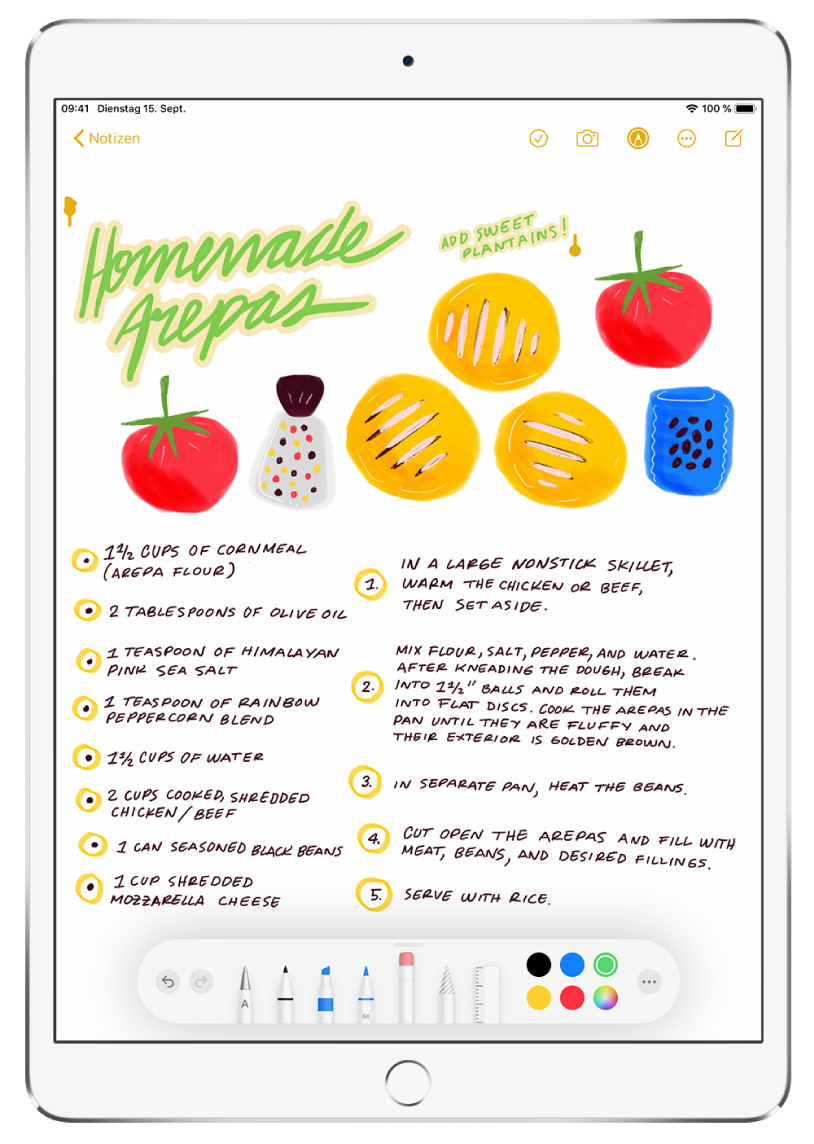 09:41 Dienstag 15. Sept.
100 %
Notizen
Homemade
Arepas
ADD SWEET
PLANTAINS!
1 1/2 CUPS OF CORNMEAL
(AREPA FLOUR)
2 TABLESPOONS OF OLIVE OIL
1 TEASPOON OF HIMALAYAN
PINK SEA SALT
1 TEASPOON OF RAINBOW
PEPPERCORN BLEND
1 1/2 CUPS OF WATER
2 CUPS COOKED, SHREDDED
CHICKEN/BEEF
1 CAN SEASONED BLACK BEANS
1 CUP SHREDDED
MOZZARELLA CHEESE
1. IN A LARGE NONSTICK SKILLET,
WARM THE CHICKEN OR BEEF,
THEN SET ASIDE.
2. MIX FLOUR, SALT, PEPPER, AND WATER.
AFTER KNEADING THE DOUGH, BREAK
INTO 1 1/2" BALLS AND ROLL THEM
INTO FLAT DISCS. COOK THE AREPAS IN THE
PAN UNTIL THEY ARE FLUFFY AND
THEIR EXTERIOR IS GOLDEN BROWN.
3. IN SEPARATE PAN, HEAT THE BEANS.
4. CUT OPEN THE AREPAS AND FILL WITH
MEAT, BEANS, AND DESIRED FILLINGS.
5. SERVE WITH RICE.
A
50